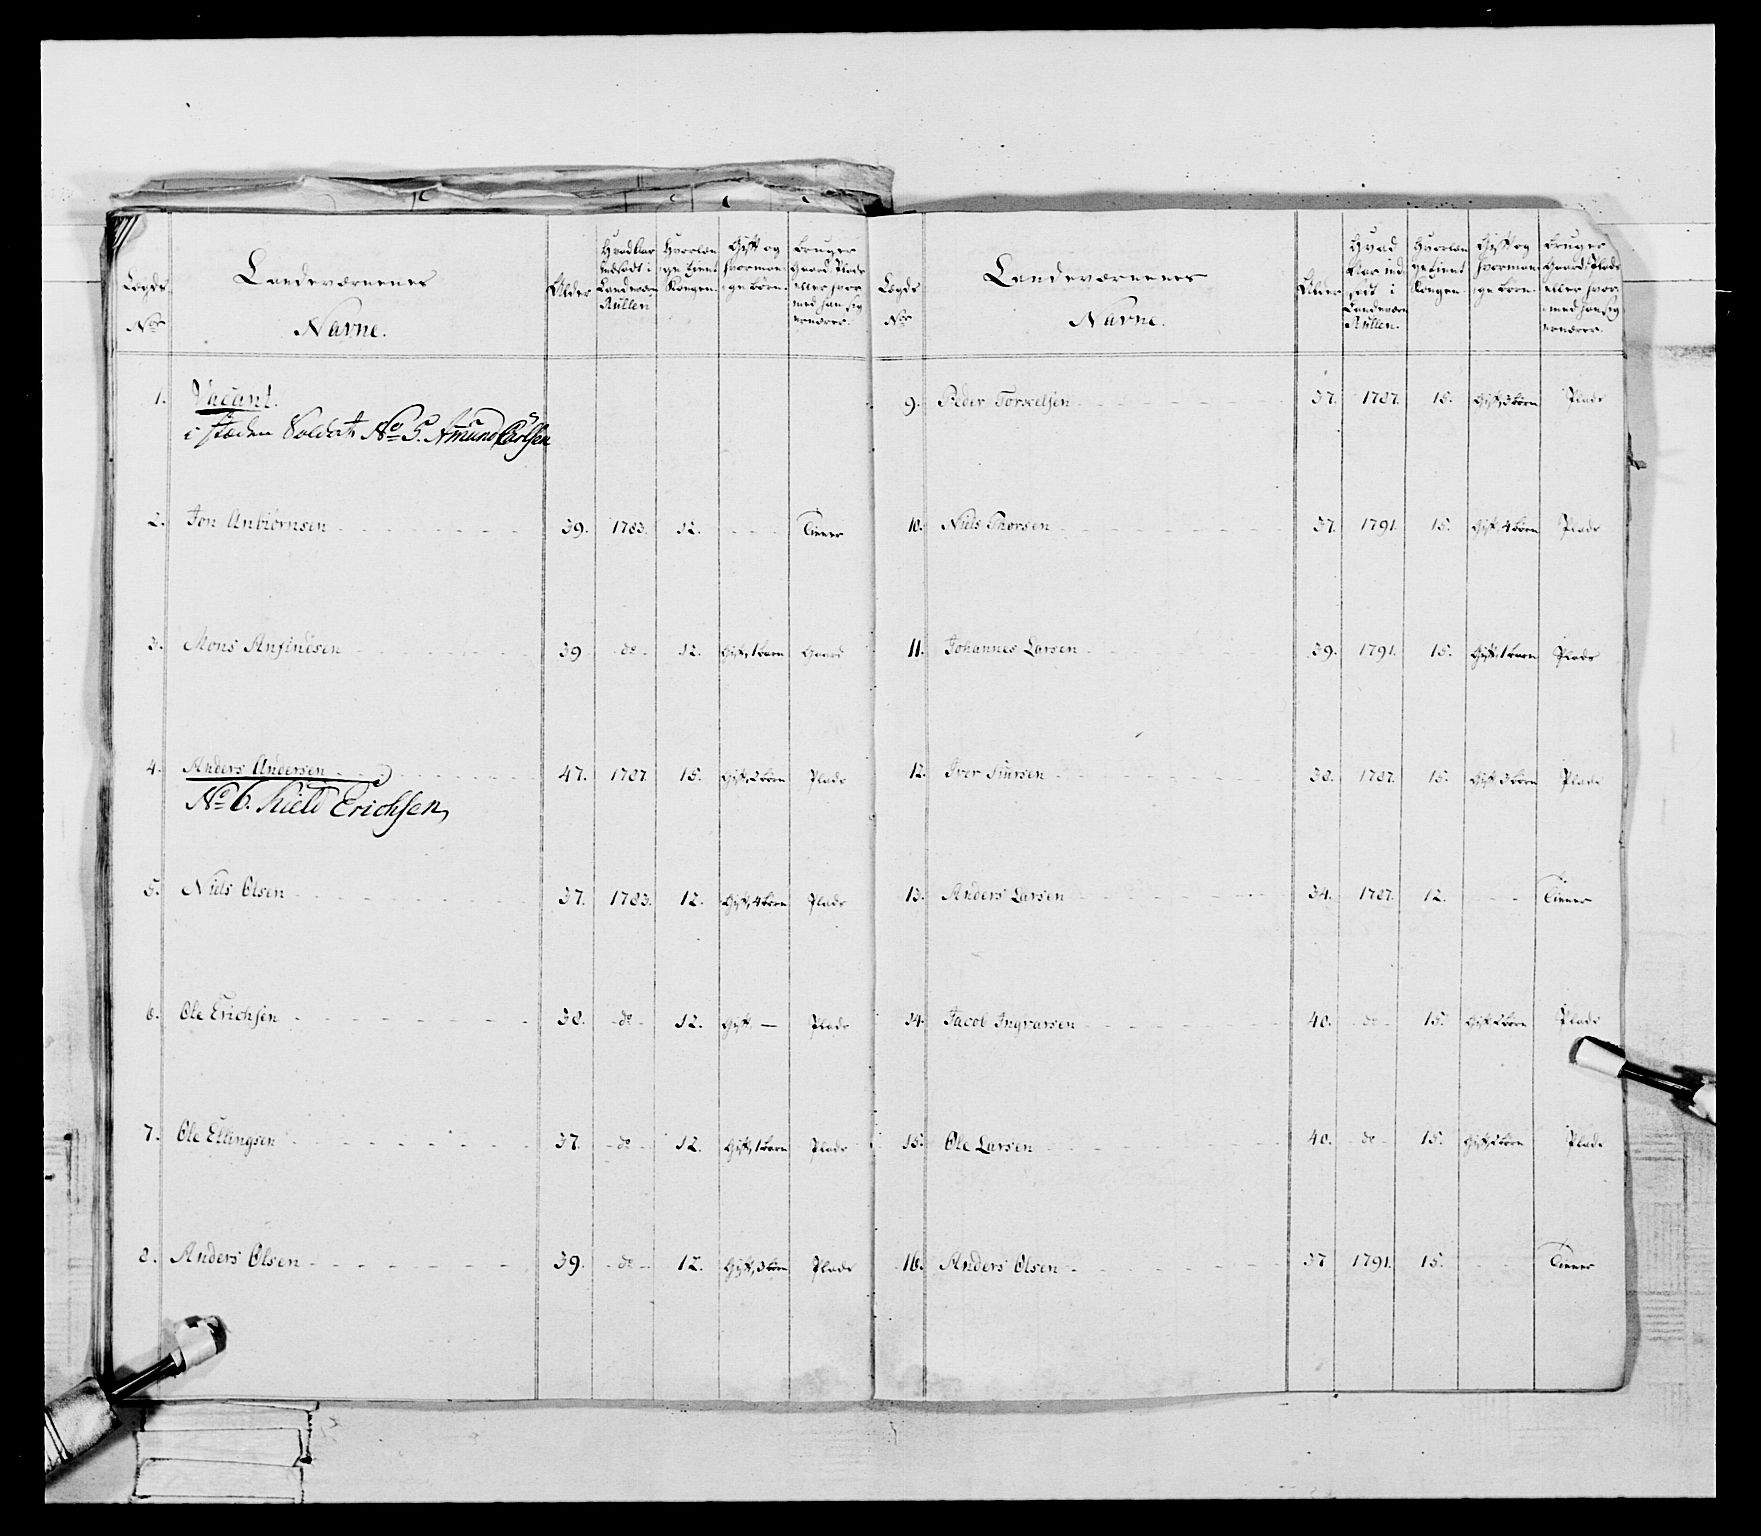 Lægds
No
Landeværnenes
Navne.
Alder
Hvad Aar
indsadt i
Landeværn
Rullen
Hvorlæn
ge tient
Kongen.
Gift og
hvorman
ge børn.
Bruger
Gaard, Plads
eller hvor
med han sig
ernærer.
1. Vacant.
i stæden Soldat No 5. Amund Carlsen
2. Jon Anbiörnsen 39. 1783. 12. Tiener
3. Mons Anfindsen 39 do 12. Gift, 1 barn Gaard
4. Anders Andersen 47. 1787 15. Gift, 2 børn Plads
No 6. Kield Erichsen,
5. Niels Olsen 37. 1783. 12. Gift, 4 børn Plads
6. Ole Erichsen 38. do 12. Gift. — Plads
7. Ole Ellingsen 37. do 12. Gift, 1 barn Plads
8. Anders Olsen 39. do 12. Gift, 3 børn Plads
Lægds
No
Landeværnenes
Navne.
Alder
Hvad
Aar ind
sadt i
Landeværn
Rullen.
Hvorlæn
ge tient
Kongen
Gift og
hvorman
ge børn.
Bruger
Gaard, Plads
eller hvor
med han sig
ernærer.
9. Peder Torkelsen 37. 1787. 15. Gift, 3 børn Plads
10. Niels Thorsen 37. 1791. 15. Gift, 4 børn Plads
11. Johannes Larsen 39. 1791. 15. Gift, 1 barn Plads
12. Iver Siursen 38. 1787. 15. Gift 3 børn Plads
13. Anders Larsen 34. 1787. 12. Tiener
14. Jacob Ingvarsen 40. do 15. Gift 2 børn Plads
15. Ole Larsen 40. do 15. Gift, 2 børn Plads
16. Anders Olsen 37 1791. 15. Tiener